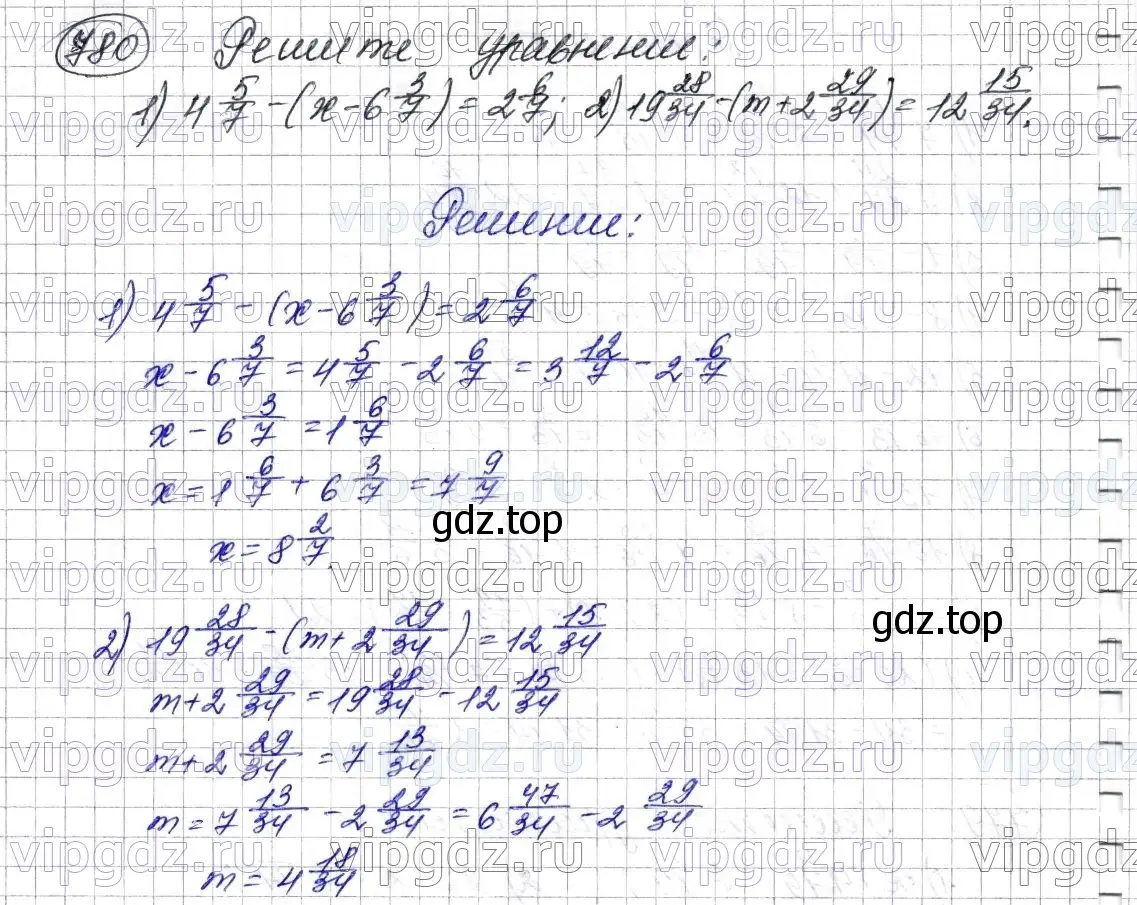 780 Решите уравнение:
1) 4 5/7 - (x - 6 3/7) = 2 6/7; 2) 19 28/34 - (m + 2 29/34) = 12 15/34.
Решение:
1) 4 5/7 - (x - 6 3/7) = 2 6/7
x - 6 3/7 = 4 5/7 - 2 6/7 = 3 12/7 - 2 6/7
x - 6 3/7 = 1 6/7
x = 1 6/7 + 6 3/7 = 7 9/7
gdz.top
x = 8 2/7.
2) 19 28/34 - (m + 2 29/34) = 12 15/34
gdz.top
m + 2 29/34 = 19 28/34 - 12 15/34
m + 2 29/34 = 7 13/34
m = 7 13/34 - 2 29/34 = 6 47/34 - 2 29/34
m = 4 18/34
vipgdz.ru